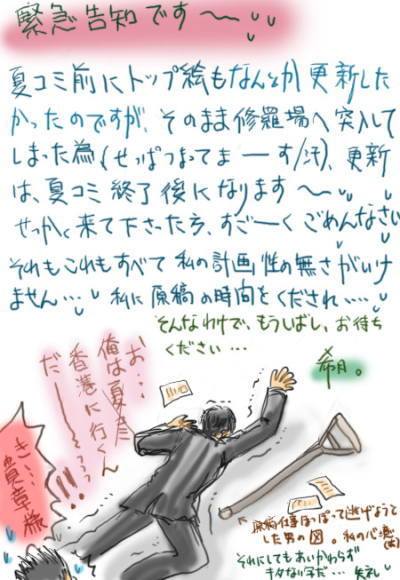 緊急告知です〜
夏コミ前にトップ絵もなんとか更新した
かったのですが、そのまま修羅場へ突入して
しまった為(せっぱつまってまーーす/汗)、更新
は、夏コミ終了後になります〜
せっかく来て下さった方、すごーくごめんなさい
それもこれもすべて私の計画性の無さがいけ
ません… 私に原稿の時間をくだされ……
そんなわけで、もうしばし、お待ち
ください…
希月。
お…
俺は夏彦
香港に行くん
だーーっっっ!!!
き…
貴章様
←原稿仕事ほっぽって逃げようと
した男の図。私の心境(笑)
それにしてもあいかわらず
きたない字だ…失礼